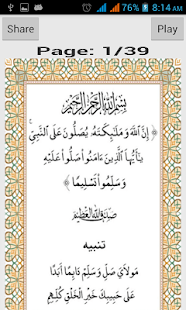 8:14 AM
Share
Play
Page: 1/39
بِسْمِ اللَّهِ الرَّحْمَنِ الرَّحِيمِ
﴿ إِنَّ اللَّهَ وَمَلَائِكَتَهُ يُصَلُّونَ عَلَى النَّبِيِّ
يَا أَيُّهَا الَّذِينَ ءَامَنُوا صَلُّوا عَلَيْهِ
وَسَلِّمُوا تَسْلِيمًا ﴾
صَدَقَ اللَّهُ الْعَظِيمُ
تنبيه
مَوْلَايَ صَلِّ وَسَلِّمْ دَائِمًا أَبَدًا
عَلَى حَبِيبِكَ خَيْرِ الْخَلْقِ كُلِّهِمِ